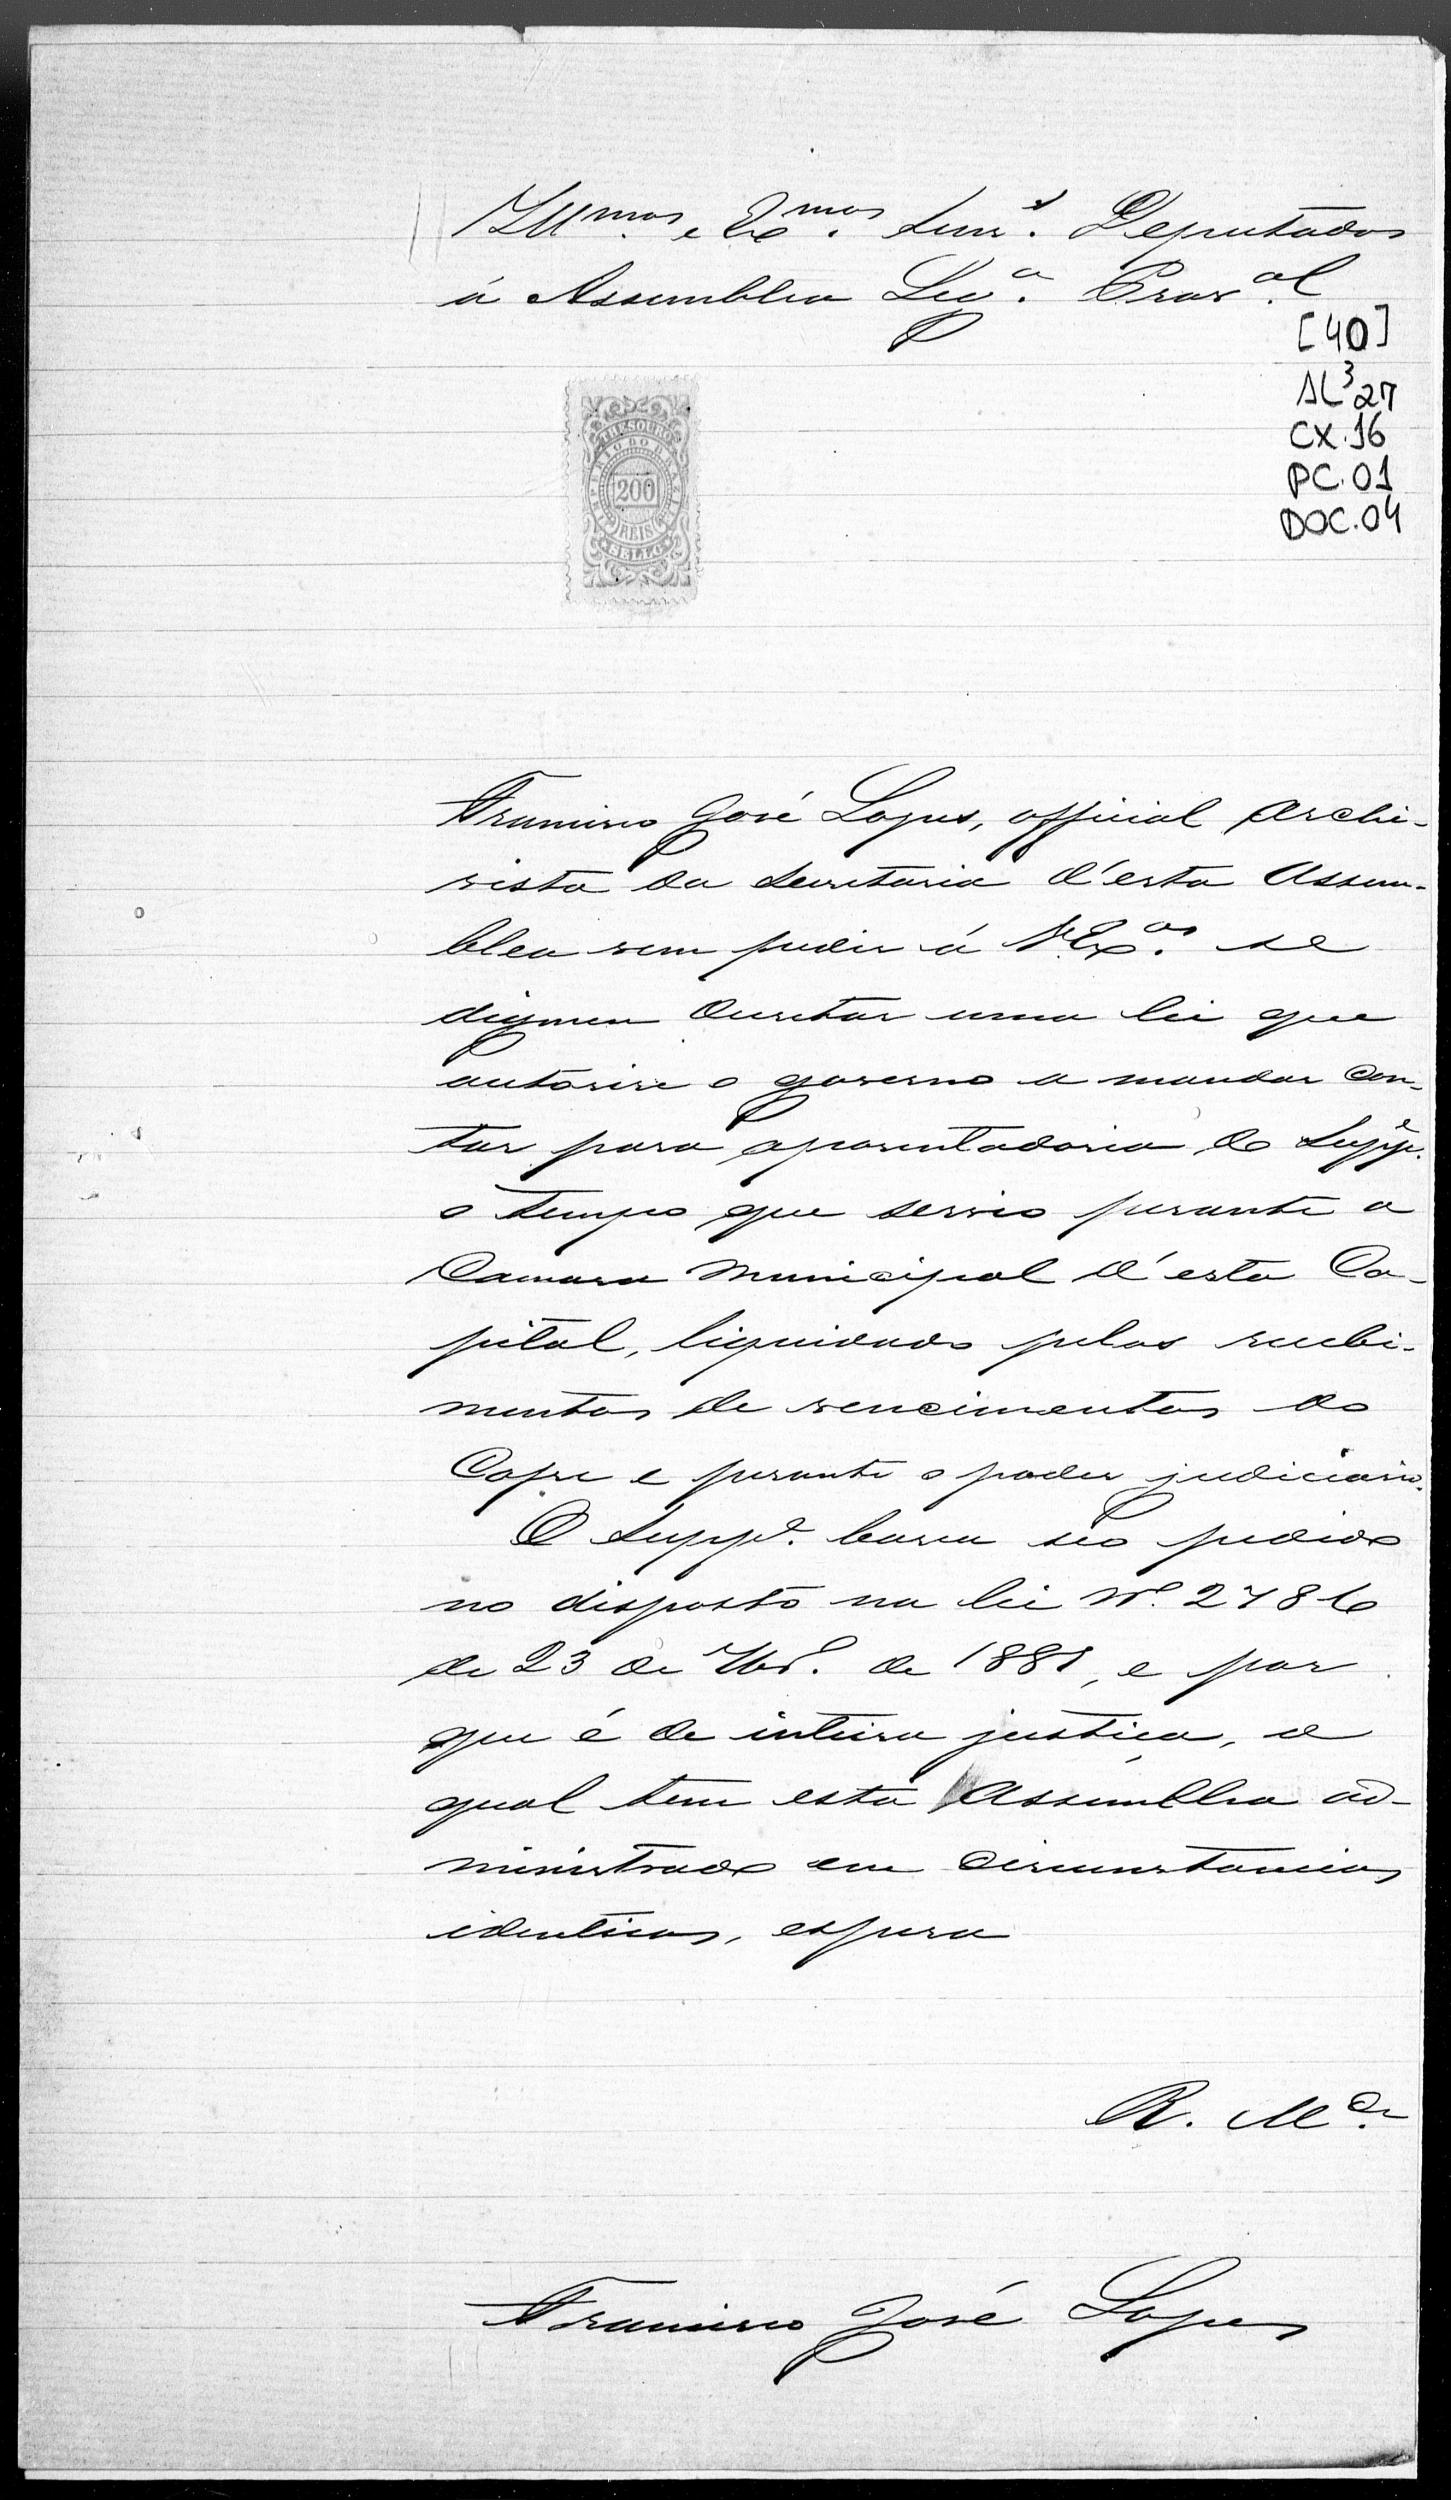 Illmos. e Exmos. Senrs. Deputados
á Assemblea Lega. Proval.
[40]
AL³27
CX.16
PC.01
DOC.04
THESOURO
IMPERIO DO BRAZIL
200
REIS
SELLO
Francisco José Lopes, official Archi-
vista da Secretaria d'esta Assem-
blea vem pedir á V.Exas. se
dignem decretar uma lei que
autorise o governo a mandar con-
tar para aposentadoria do Suppe.
o tempo que servio perante a
Camara Municipal d'esta Ca-
pital, liquidado pelos recebi-
mentos de vencimentos do
Cofre e perante o poder judiciario.
O Suppe. basea seo pedido
no disposto na lei No. 2786
de 23 de 7bro. de 1881, e por
que é de inteira justiça, a
qual tem esta Assemblea ad-
ministrado em circumstancias
identicas, espera
R. Mce.
Francisco José Lopes